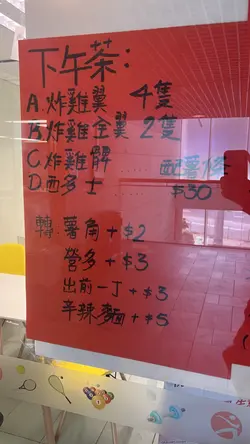 下午茶：
A. 炸雞翼 4隻
B. 炸雞全翼 2隻
C. 炸雞髀 ..... 配薯條
D. 西多士 ..... $30
轉: 薯角 + $2
營多 + $3
出前一丁 + $3
辛辣麵 + $5